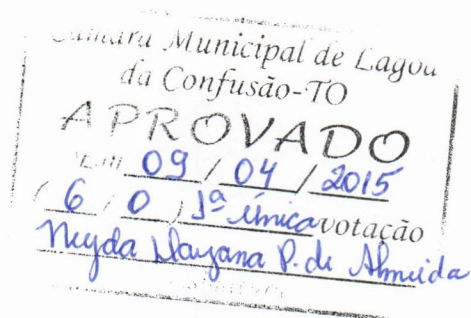 Câmara Municipal de Lagoa
da Confusão-TO
APROVADO
Em 09 / 04 / 2015
( 6 / 0 ) 1ª única votação
Neyda Dayana P. de Almeida